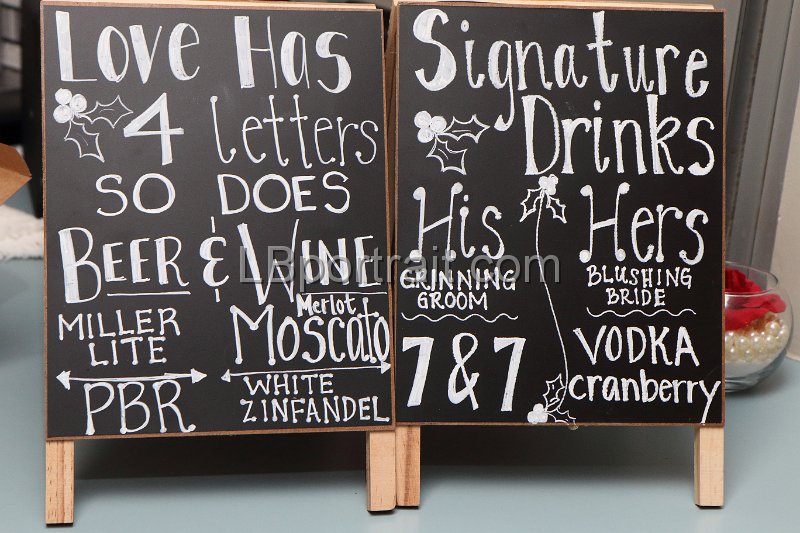 Love Has
4 letters
SO DOES
BEER & WINE
MILLER
LITE
PBR
Merlot
Moscato
WHITE
ZINFANDEL
Signature
Drinks
His
GRINNING
GROOM
7&7
Hers
BLUSHING
BRIDE
VODKA
cranberry
LBportrait.com